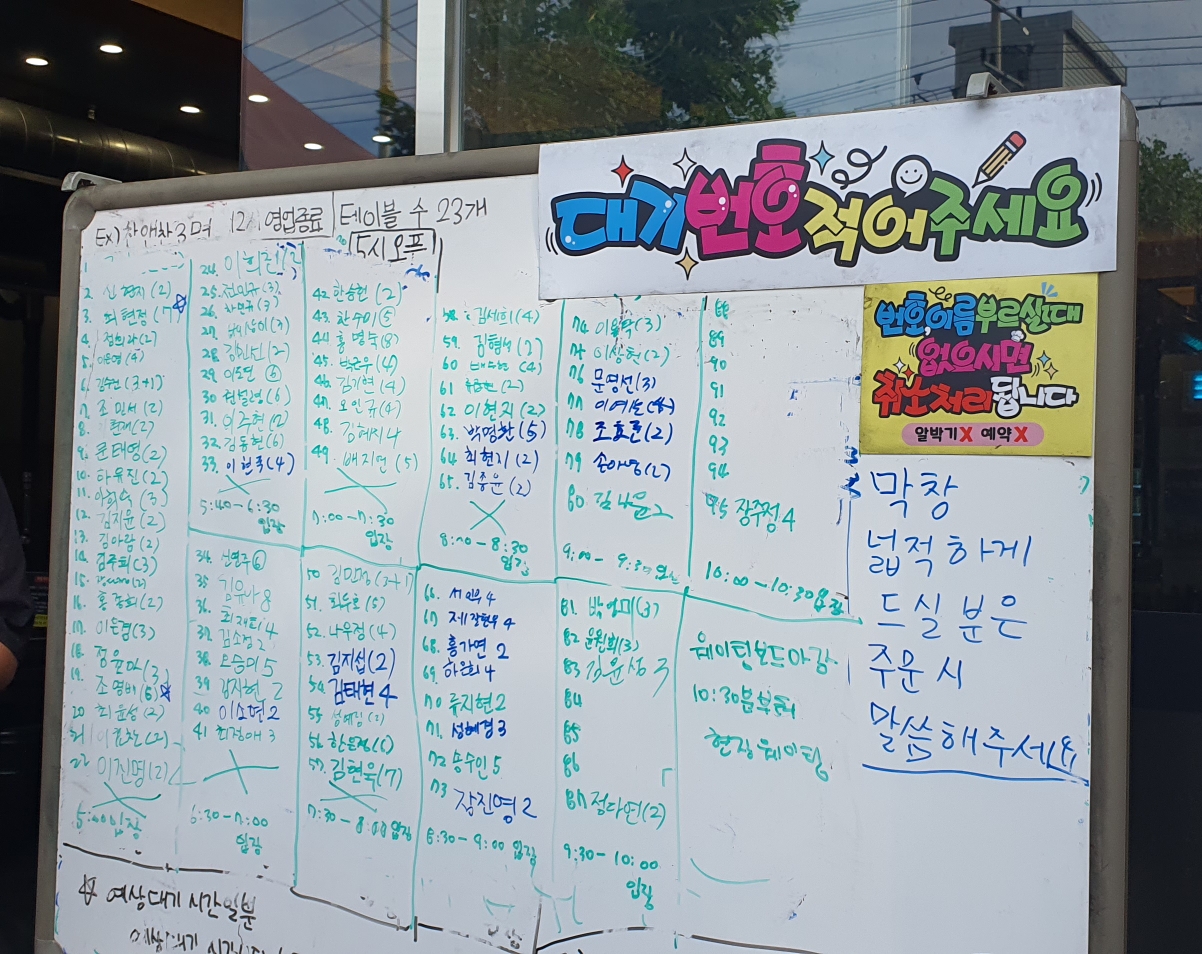 대기번호 적어주세요
Ex) 찬앤찬 3명 12시 영업종료 테이블 수 23개
5시 오픈
번호,이름 부르실때
없으시면
취소처리됩니다
알박기X 예약X
막창
넓적하게
드실 분은
주문 시
말씀해주세요
1
2. 신현지(2)
3. 최현정(7)
4.
5. 이은영(4)
6. (3+1)
7. 조민서(2)
8. (2)
9. 윤태영(2)
10. 하유진(2)
11. (3)
12. 김지윤(2)
13. 김아람(2)
14. 김주희(3)
15.
16. 홍경희(2)
17. 이은경(3)
18. 정윤아(3)
19. 조영배(6)
20 최윤성(2)
21
22 이진명(2)
5:00입장
24. 이희진
25.
26.
27.
28. (2)
29.
30 (6)
31. 이주현(2)
32. 김동현(6)
33. 이현죽(4)
5:40-6:30
입장
34. 신영주⑥
35 김유나 8
36. 4
37. 김소정 2
38. 오승미 5
39 김지현 2
40 이소연 2
41 3
6:30-7:00
입장
42. 한승현(2)
43. 한수미⑤
44 홍명숙(8)
45. 박근우(4)
46. 김기현(4)
47. 오인규(4)
48. 김혜지 4
49. 배지연(5)
7:00-7:30
입장
50
51. 최두호(5)
52. 나우정(4)
53. 김지섭(2)
54. 김태현 4
55 (2)
56. 한은정(6)
57. 김현욱(7)
7:30-8:00 입장
58. 김세희(4)
59. 김형서(2)
60 (4)
61
62 이현지(2)
63. 박명환(5)
64 최현지(2)
65. 김종윤(2)
8:00-8:30
입장
66. 서민우 4
67. 4
68. 홍가연 2
69. 하은희 4
70 류지현 2
71. 성혜경 3
72 송수인 5
73 장진영 2
8:30-9:00 입장
74 (3)
75 이상현(2)
76 문영선(3)
77
78 조효준(2)
79 손아영(2)
80 김나윤 2
9:00-9:30 입장
81. 박영미(3)
82 윤원희(3)
83 김윤성 3
84
85
86
87 정다연(2)
9:30-10:00
입장
88
89
90
91
92
93
94
95 장주정 4
10:00-10:30 입장
웨이팅보드마감
10:30분부터
현장웨이팅
예상대기 시간일뿐
예상대기